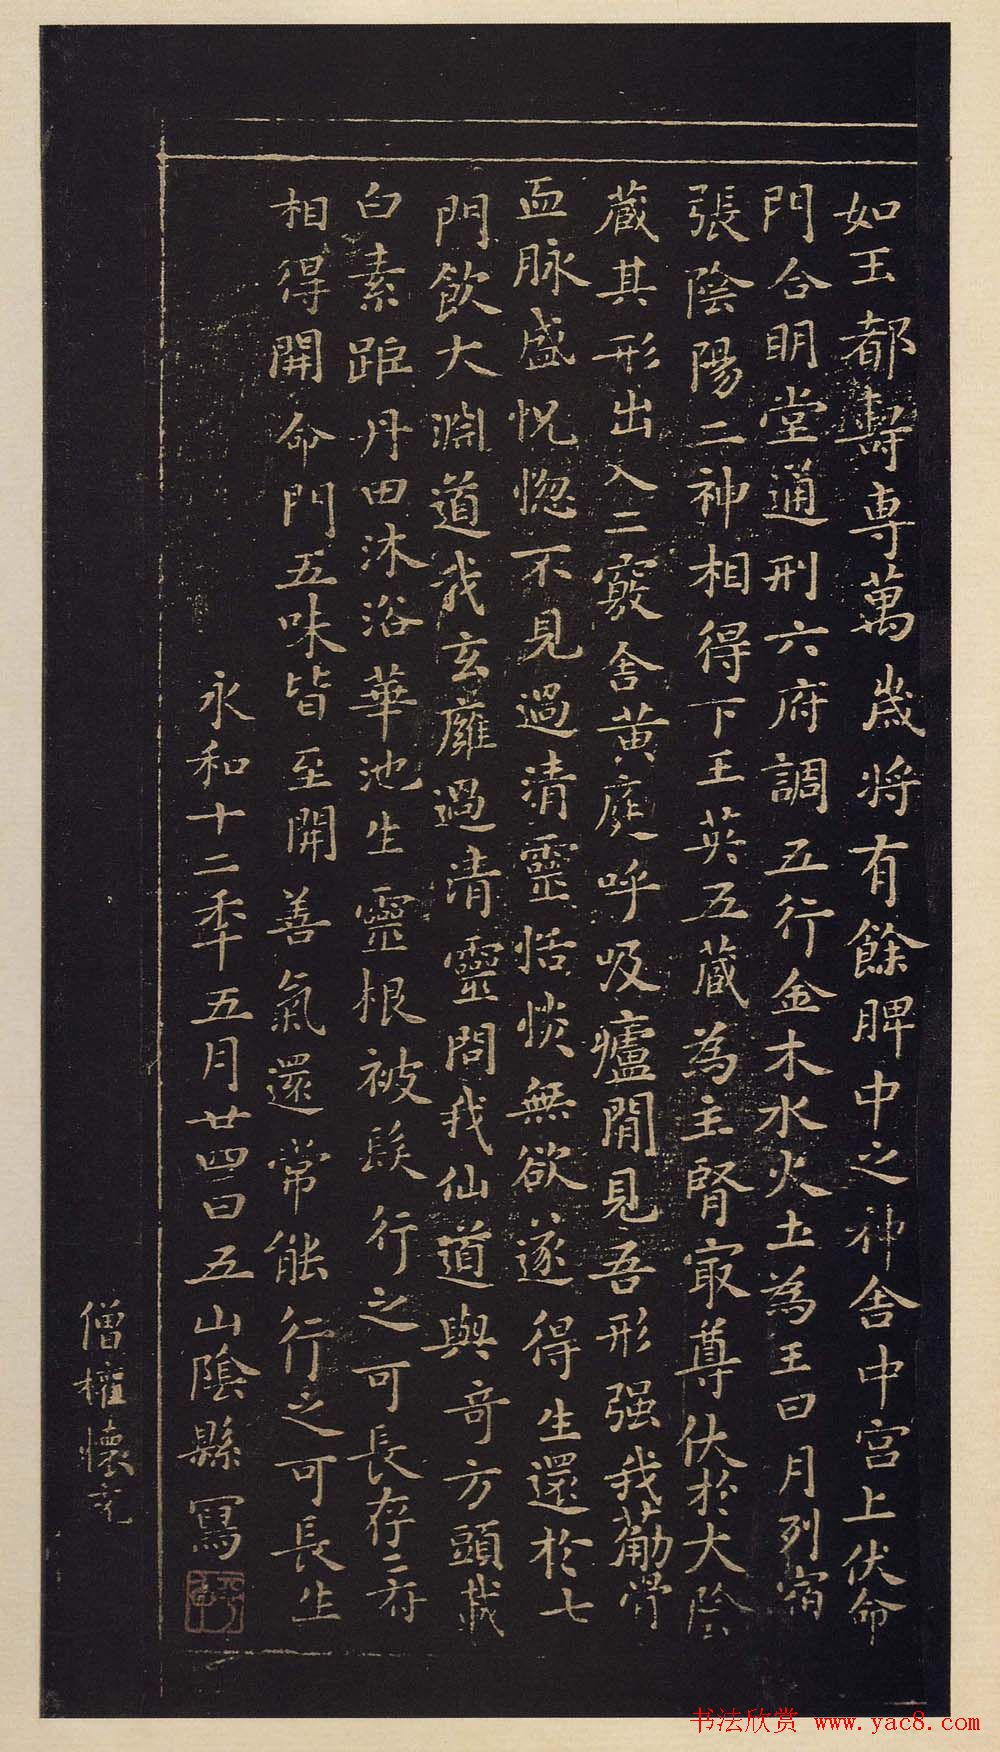 如玉都壽專萬歲將有餘脾中之神舍中宮上伏命
門合明堂通利六府調五行金木水火土為王日月列宿
張陰陽二神相得下玉英五藏為主腎冣尊伏於大陰
藏其形出入二竅舍黃庭呼吸廬間見吾形强我筋骨
血脉盛怳惚不見過清靈恬惔無欲遂得生還於七
門飲大淵道我玄廱過清靈問我仙道與奇方頭戴
白素距丹田沐浴華池生靈根被髮行之可長存二府
相得開命門五味皆至開善氣還常能行之可長生
永和十二年五月廿四日五山陰縣寫
僧權懷充
书法欣赏 www.yac8.com